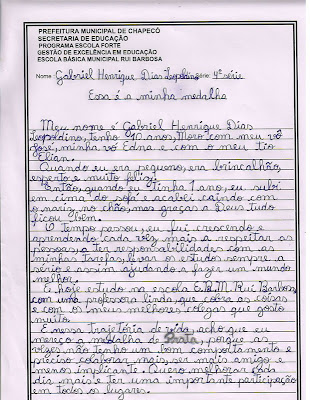 PREFEITURA MUNICIPAL DE CHAPECÓ
SECRETARIA DE EDUCAÇÃO
PROGRAMA ESCOLA FORTE
GESTÃO DE EXCELÊNCIA EM EDUCAÇÃO
ESCOLA BÁSICA MUNICIPAL RUI BARBOSA
Nome: Gabriel Henrique Dias Leopoldino Série: 4ª série
Essa é a minha medalha
Meu nome é Gabriel Henrique Dias
Leopoldino, tenho 10 anos, Moro com meu vô
José, minha vó Edna e com o meu tio
Elian.
Quando eu era pequeno, era brincalhão,
esperto e muito feliz.
Então, quando eu tinha 1 ano, eu subi
em cima do sofá e acabei caindo com
o nariz no chão, mas graças a Deus tudo
ficou bem.
O tempo passou, eu fui crescendo e
aprendendo cada vez mais a respeitar as
pessoas, a ter responsabilidades com as
minhas tarefas, levar os estudos sempre a
sério e assim ajudando a fazer um mundo
melhor.
E hoje estudo na escola E.B.M. Rui Barbosa,
com uma professora linda, que cobra as coisas
e com os meus melhores colegas que gosto
muito.
E nessa trajetória de vida, acho que eu
mereço a medalha de Prata, porque as
vezes não tenho um bom comportamento e
preciso colaborar mais, ser mais amigo e
menos implicante. Quero melhorar cada
dia mais e ter uma importante participação
em todos os lugares.